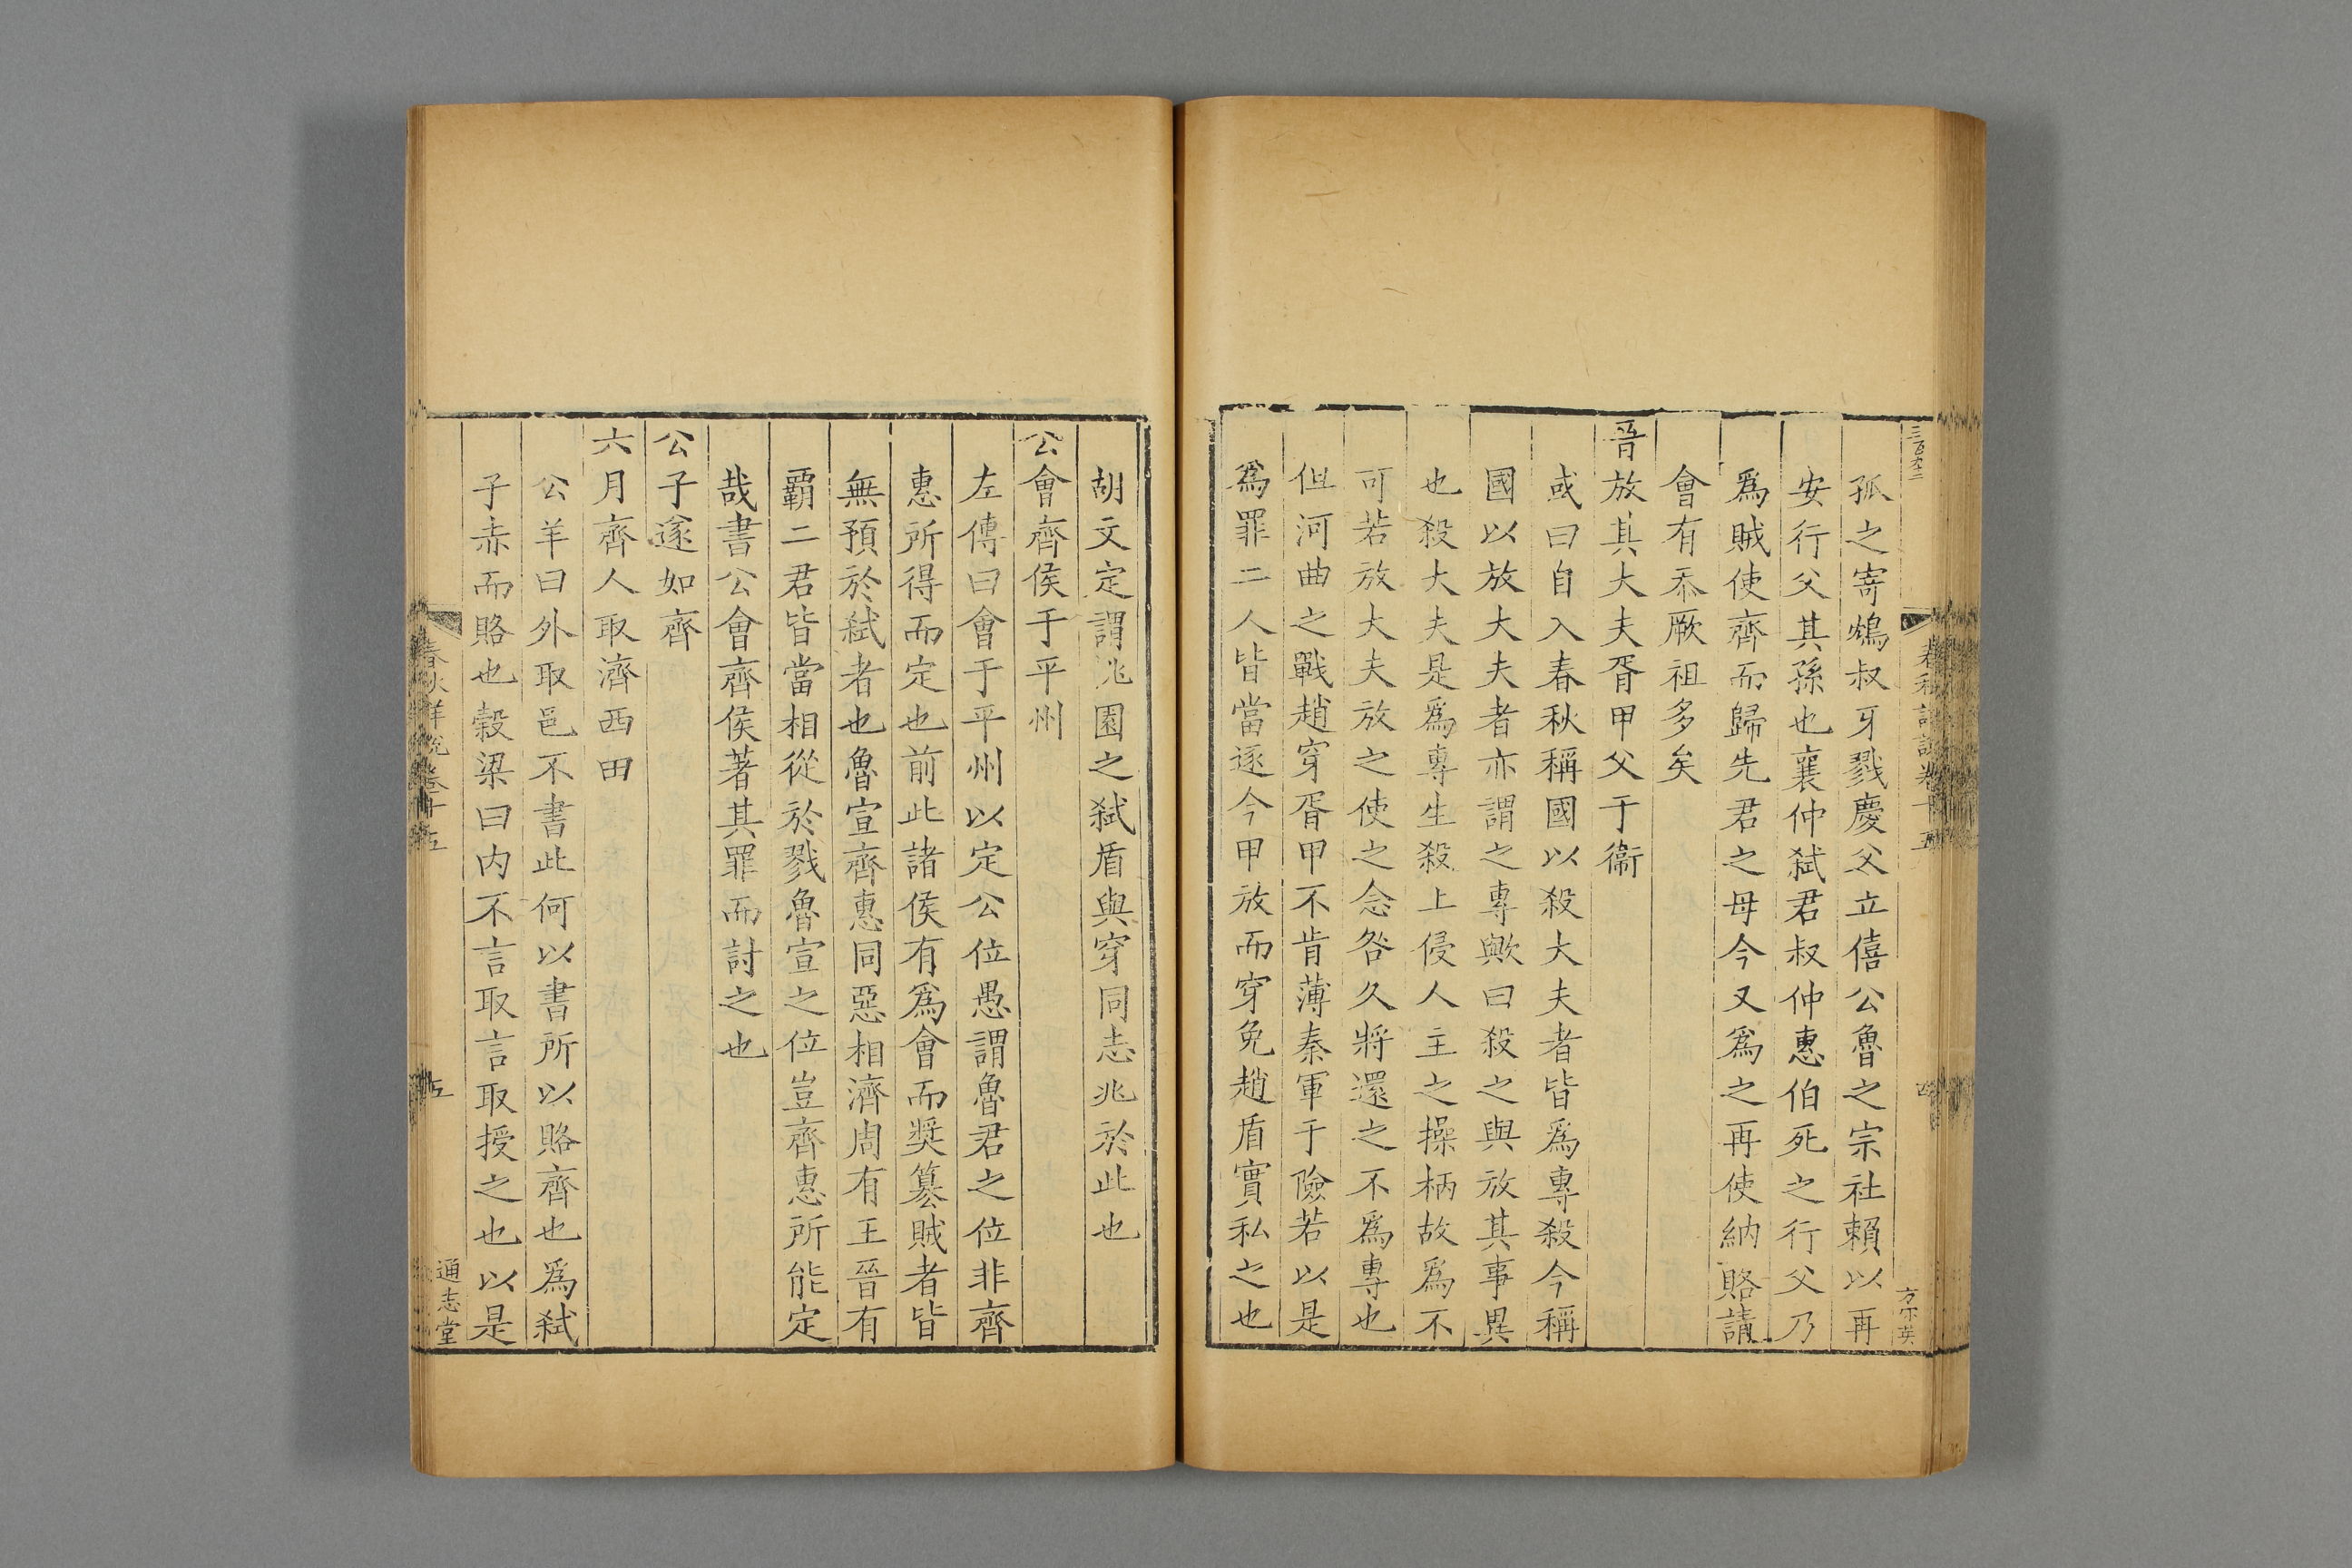 三百九十二
孤之寄鴆叔牙戮慶父立僖公魯之宗社賴以再
安行父其孫也襄仲弑君叔仲惠伯死之行父乃
爲賊使齊而歸先君之母今又爲之再使納賂請
會有忝厥祖多矣
晉放其大夫胥甲父于衞
或曰自入春秋稱國以殺大夫者皆爲專殺今稱
國以放大夫者亦謂之專歟曰殺之與放其事異
也殺大夫是爲專生殺上侵人主之操柄故爲不
可若放大夫放之使之念咎久將還之不爲專也
但河曲之戰趙穿胥甲不肯薄秦軍于險若以是
爲罪二人皆當逐今甲放而穿免趙盾實私之也
胡文定謂桃園之弑盾與穿同志兆於此也
公會齊侯于平州
左傳曰會于平州以定公位愚謂魯君之位非齊
惠所得而定也前此諸侯有爲會而奬篡賊者皆
無預於弑者也魯宣齊惠同惡相濟周有王晉有
霸二君皆當相從於戮魯宣之位豈齊惠所能定
哉書公會齊侯著其罪而討之也
公子遂如齊
六月齊人取濟西田
公羊曰外取邑不書此何以書所以賂齊也爲弑
子赤而賂也穀梁曰内不言取言取授之也以是
春秋詳說卷十五
五
通志堂